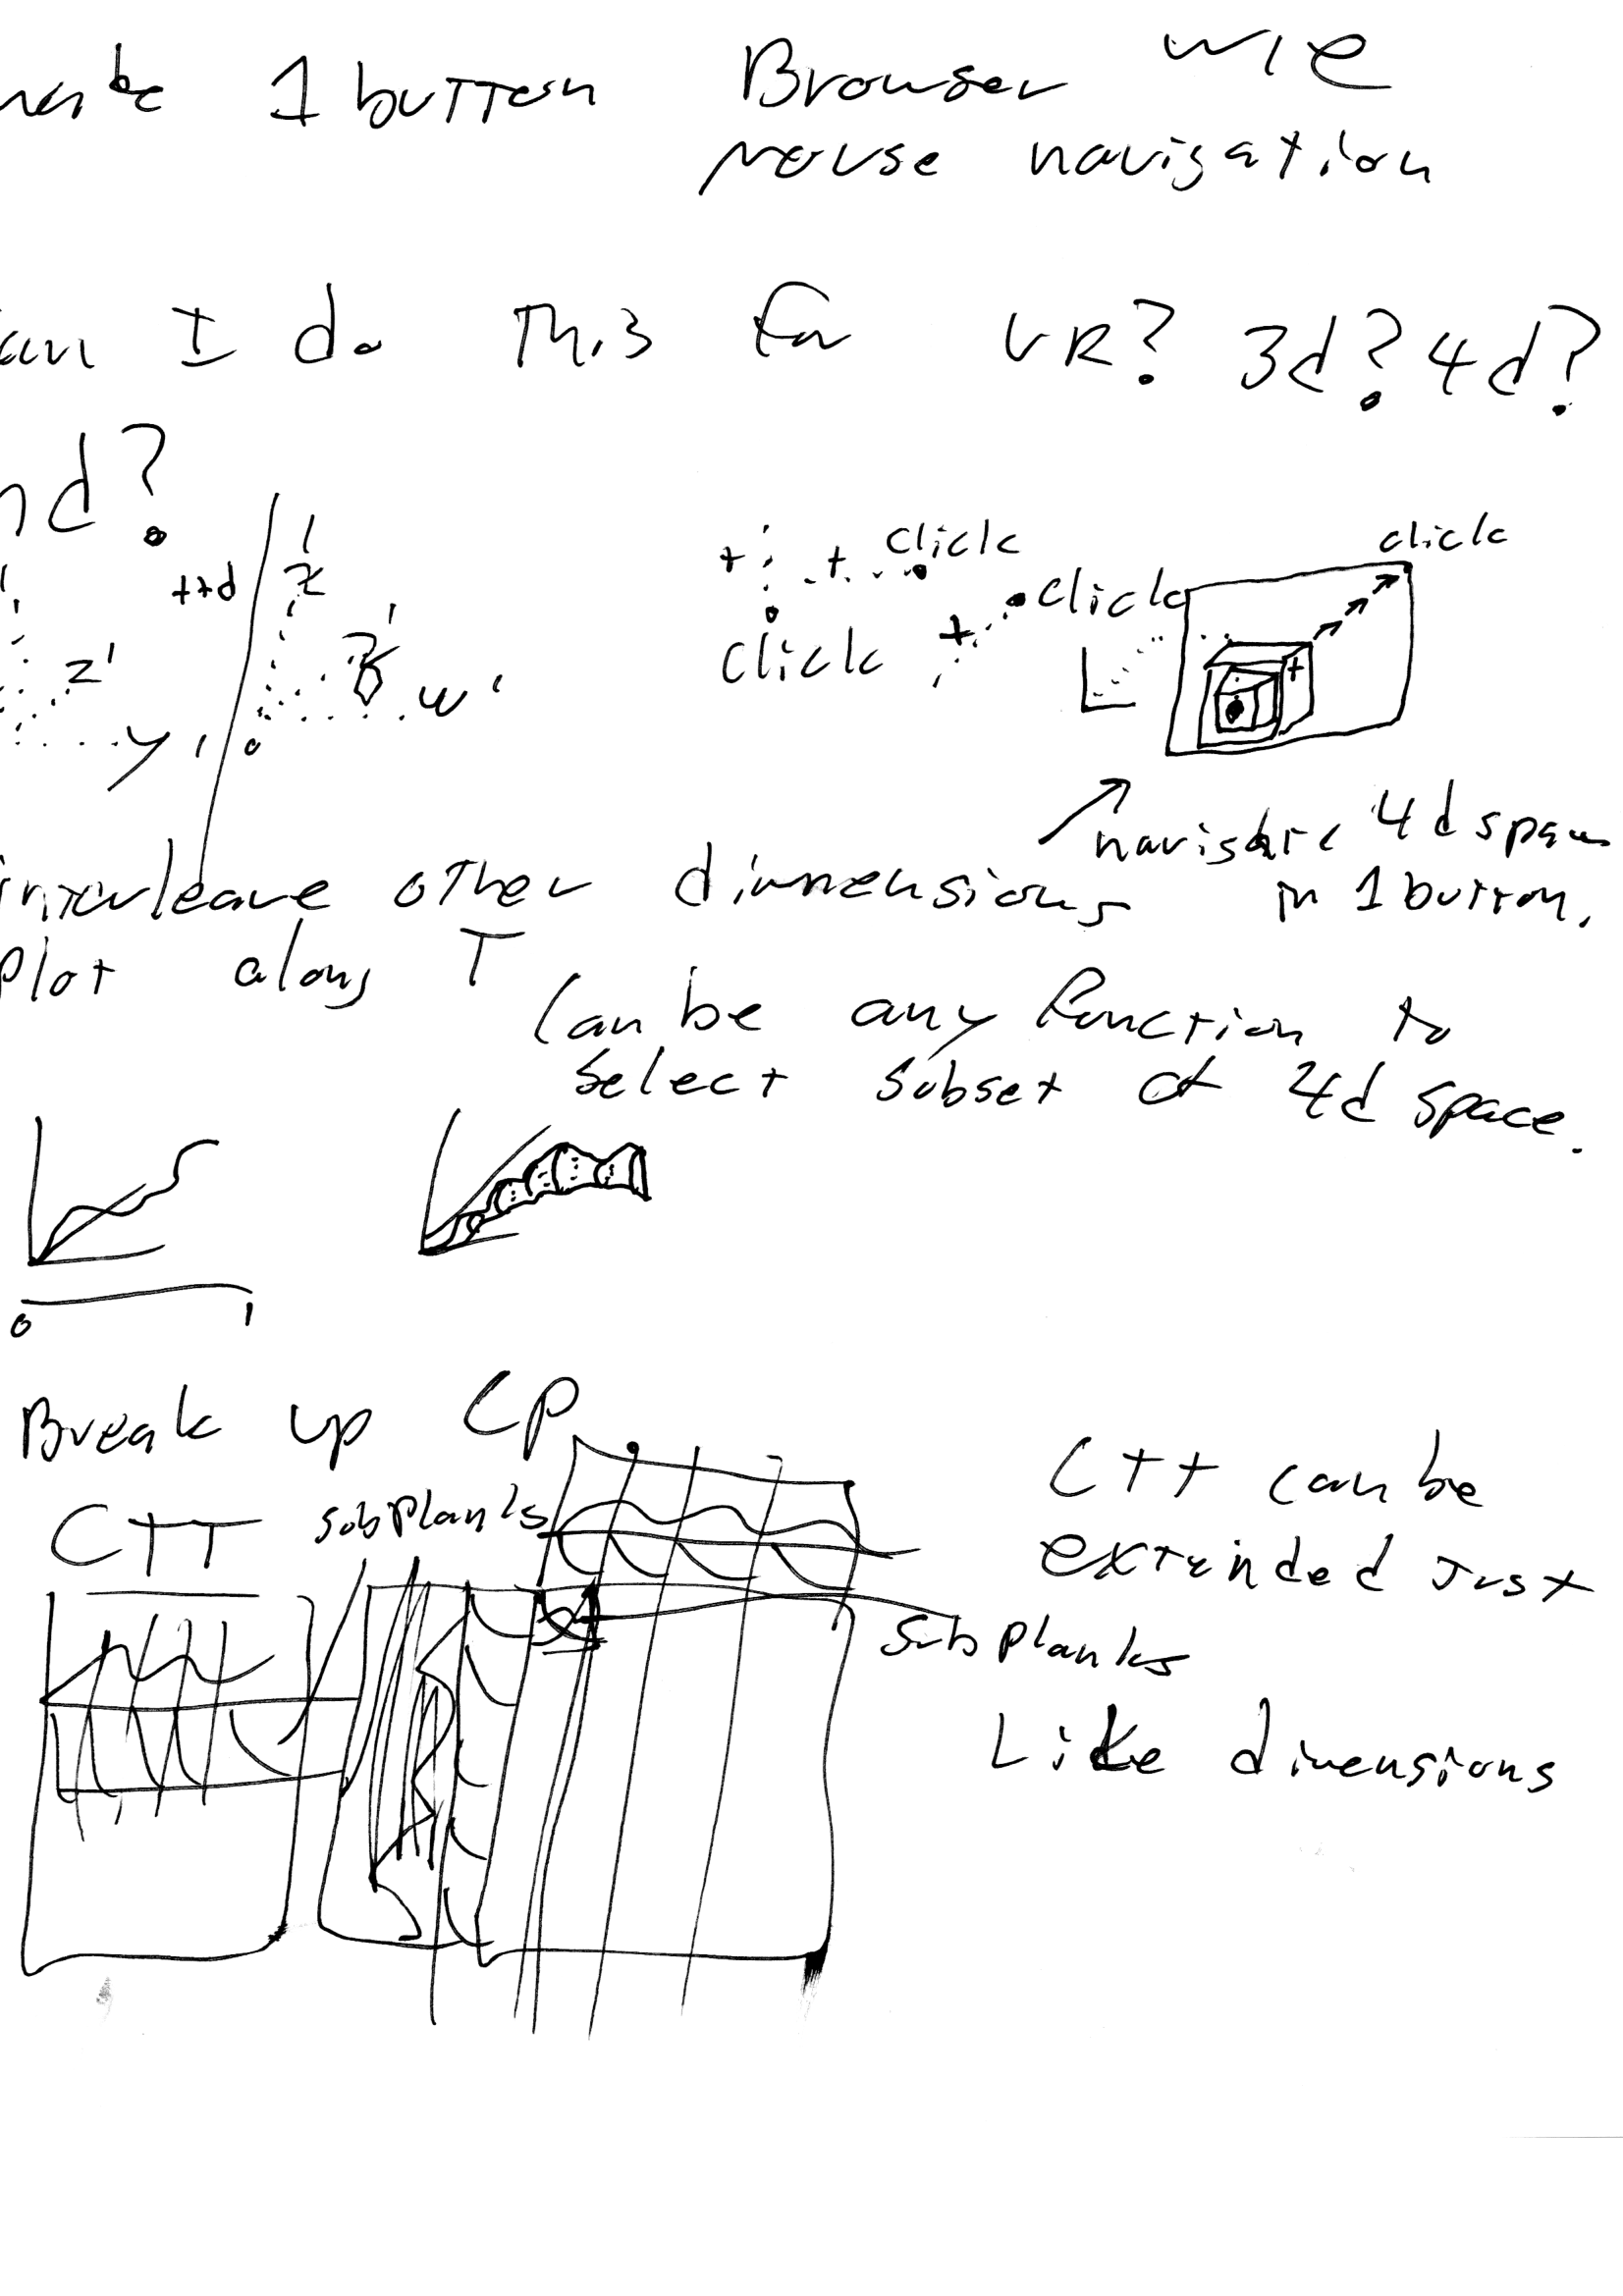 1 button Browser
mouse navigation
I do This for VR? 3d? 4d?
nd?
click
click
click
click
++d
z
z'
y'
w'
0
navigate 4d space
in 1 button.
interleave other dimmensions
Plot along T
Can be any function to
select subset of 4d space.
0 1
Break up CP
CTT subplanks
CTT can be
extended Just
subplanks
Like dimensions